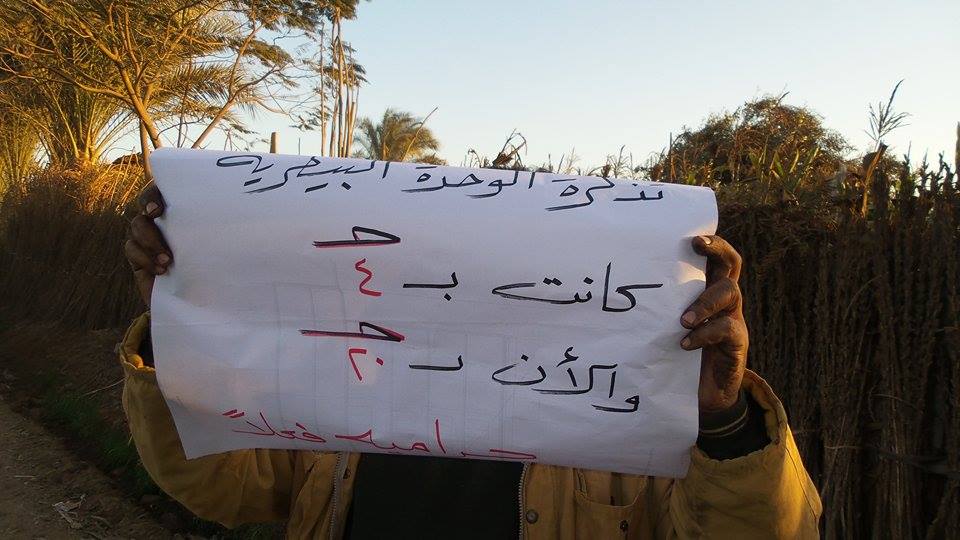 تذكرة الوحدة البيطريه
كانت بـ ٤ جـ
والأن بـ ٢٠ جـ
حراميه فعلاً